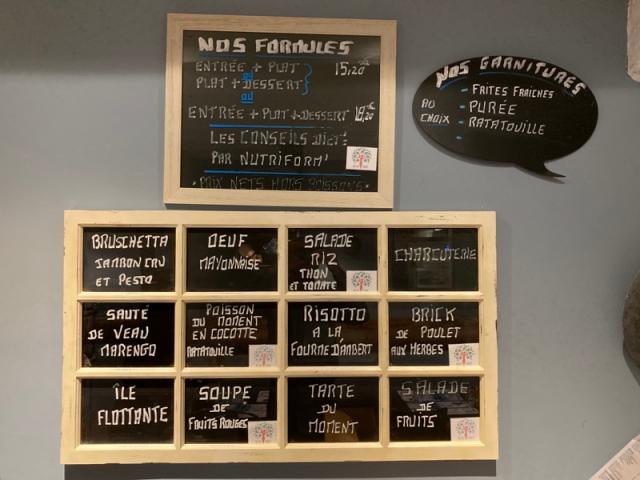 NOS FORMULES
ENTRÉE + PLAT
ou
PLAT + DESSERT
15,20
ou
ENTRÉE + PLAT + DESSERT 18,20
LES CONSEILS DIET:
PAR NUTRIFORM'
PRIX NETS HORS BOISSONS
NOS GARNITURES
AU CHOIX
- FRITES FRAÎCHES
- PURÉE
- RATATOUILLE
-
BRUSCHETTA
JAMBON CRU
ET PESTO
OEUF
MAYONNAISE
SALADE
RIZ
THON
ET TOMATE
CHARCUTERIE
SAUTÉ
DE VEAU
MARENGO
POISSON
DU MOMENT
EN COCOTTE
RATATOUILLE
RISOTTO
A LA
FOURME D'AMBERT
BRICK
DE POULET
AUX HERBES
ÎLE
FLOTTANTE
SOUPE
DE
FRUITS ROUGES
TARTE
DU
MOMENT
SALADE
DE
FRUITS